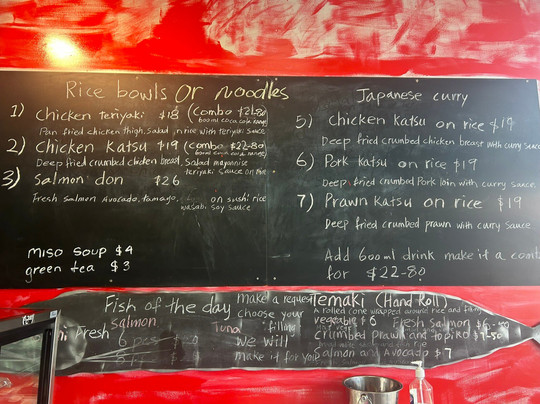 Rice bowls Or noodles
1) Chicken teriyaki $18 (Combo $21-80
600ml coca cola range)
Pan fried chicken thigh, Salad, n rice with teriyaki sauce
2) Chicken Katsu $19 (Combo $22-80
Deep fried crumbed chicken breast, Salad mayonnise
teriyaki sauce on
3) Salmon don $26
Fresh Salmon Avocado, tamago, on sushi rice
wasabi, soy sauce
miso soup $4
green tea $3
Japanese curry
5) Chicken Katsu on rice $19
Deep fried crumbed chicken breast with curry sauce
6) Pork katsu on rice $19
Deep fried crumbed Pork loin, with curry sauce.
7) Prawn katsu on rice $19
Deep fried crumbed prawn with curry sauce
Add 600ml drink make it a comb
for $22-80
Fish of the day
Fresh salmon
6 pcs
make a request
choose your
Tuna filling
we will
make it for you
Temaki (Hand Roll)
A rolled cone wrapped around rice and filling
vegetable $6 Fresh Salmon
crumbed prawn and topiko $7-50
Salmon and Avocado $7